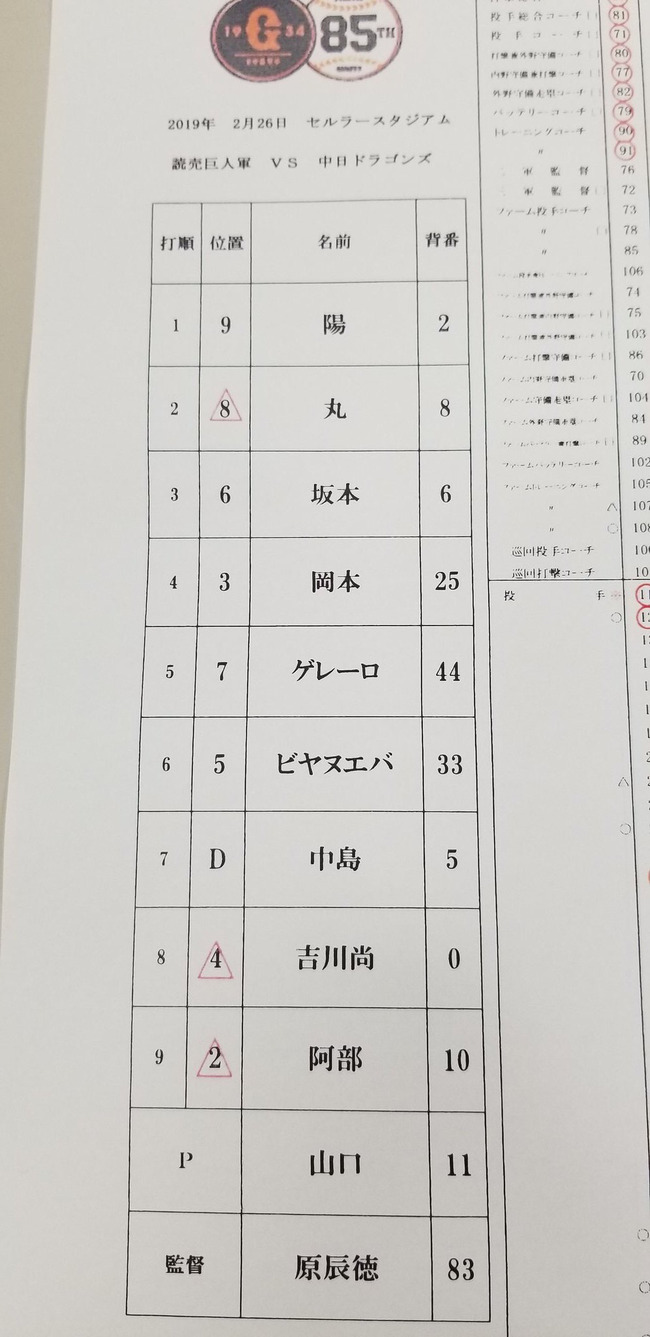 1934
G
85TH
2019年 2月26日 セルラースタジアム
読売巨人軍 VS 中日ドラゴンズ
打順 位置 名前 背番
1 9 陽 2
2 8 丸 8
3 6 坂本 6
4 3 岡本 25
5 7 ゲレーロ 44
6 5 ビヤヌエバ 33
7 D 中島 5
8 4 吉川尚 0
9 2 阿部 10
P 山口 11
監督 原辰徳 83
投手総合コーチ 81
投手コーチ 71
打撃兼外野守備コーチ 80
内野守備兼打撃コーチ 77
外野守備走塁コーチ 82
バッテリーコーチ 79
トレーニングコーチ 90
〃 91
軍監督 76
三軍監督 72
ファーム投手コーチ 73
〃 78
〃 85
106
74
75
103
ファーム打撃守備コーチ 86
70
ファーム守備走塁コーチ 104
ファーム外野守備走塁コーチ 84
89
ファームバッテリーコーチ 102
ファームトレーニングコーチ 105
〃 △ 107
〃 ○ 108
巡回投手コーチ
巡回打撃コーチ
投手